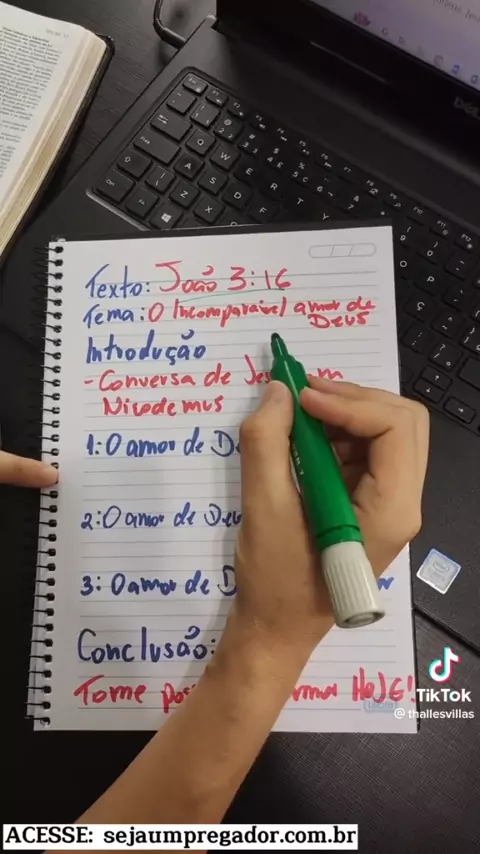 Texto: João 3:16
Tema: O Incomparável amor de
Deus
Introdução
- Conversa de
Nicodemus
1: O amor de
2: O amor de
3: O amor de
Conclusão:
Tome HOJE!
TikTok
@thallesvillas
ACESSE: sejaumpregador.com.br